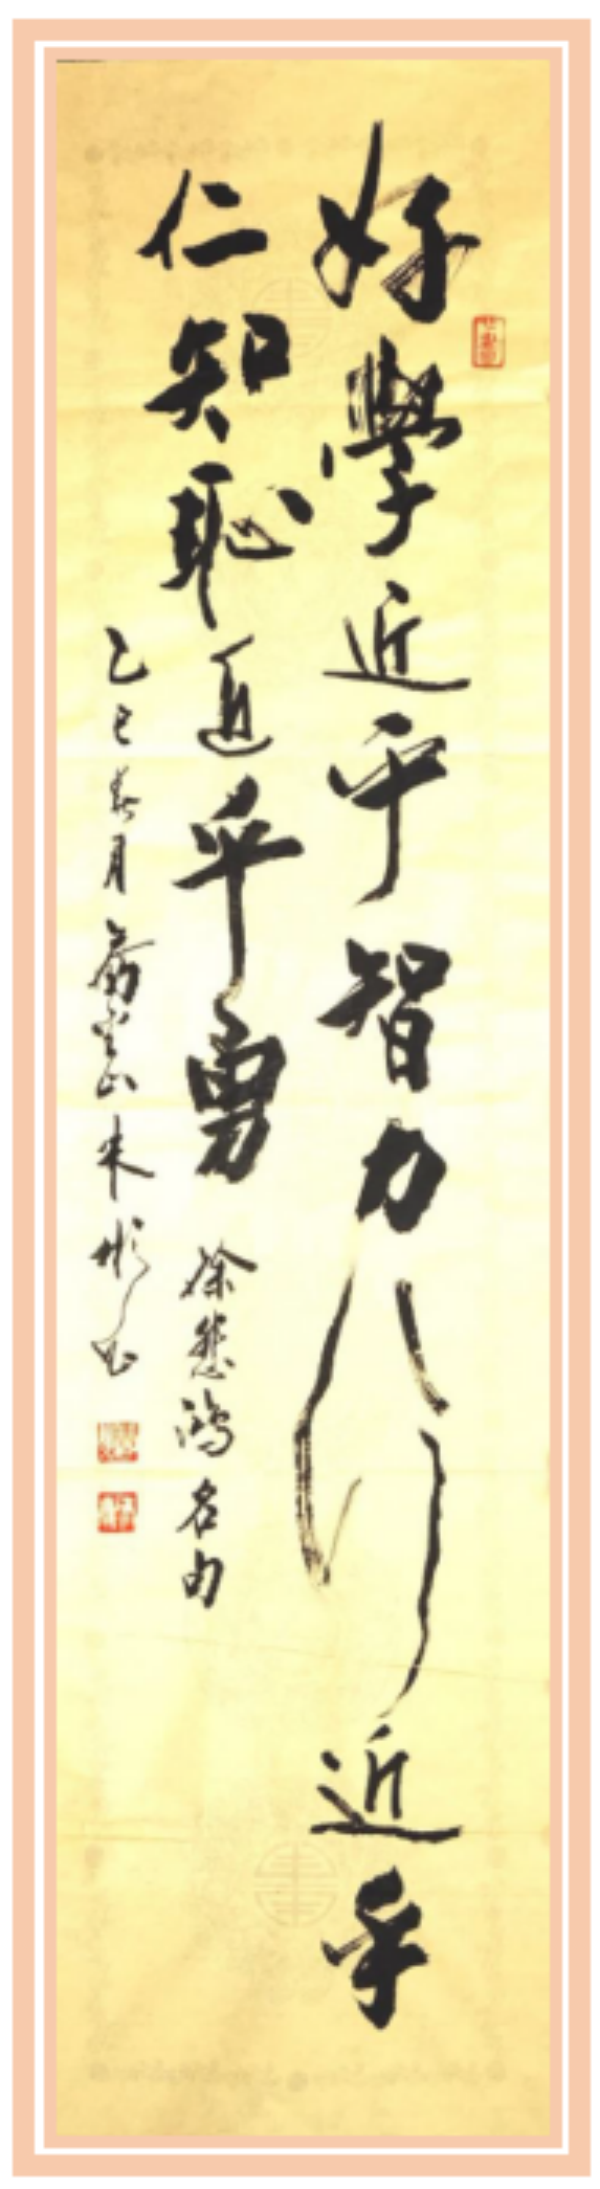 好學近乎智力行近乎
仁知恥近乎勇 徐悲鴻名句
乙巳春月 山朱彬書